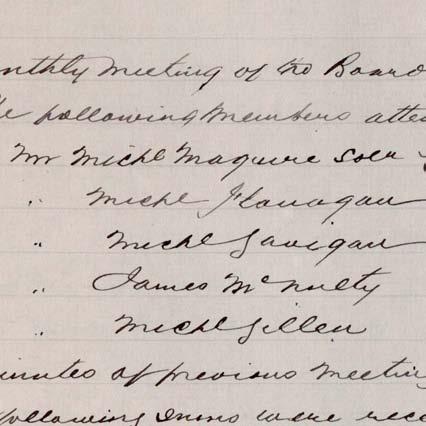 nthly Meeting of the Board
he following Members atte
Mr Michl Maguire Solr
" Michl Flanagan
" Michl Gavigan
" James McNulty
" Michl Gillen
inutes of previous Meeting
following were rece